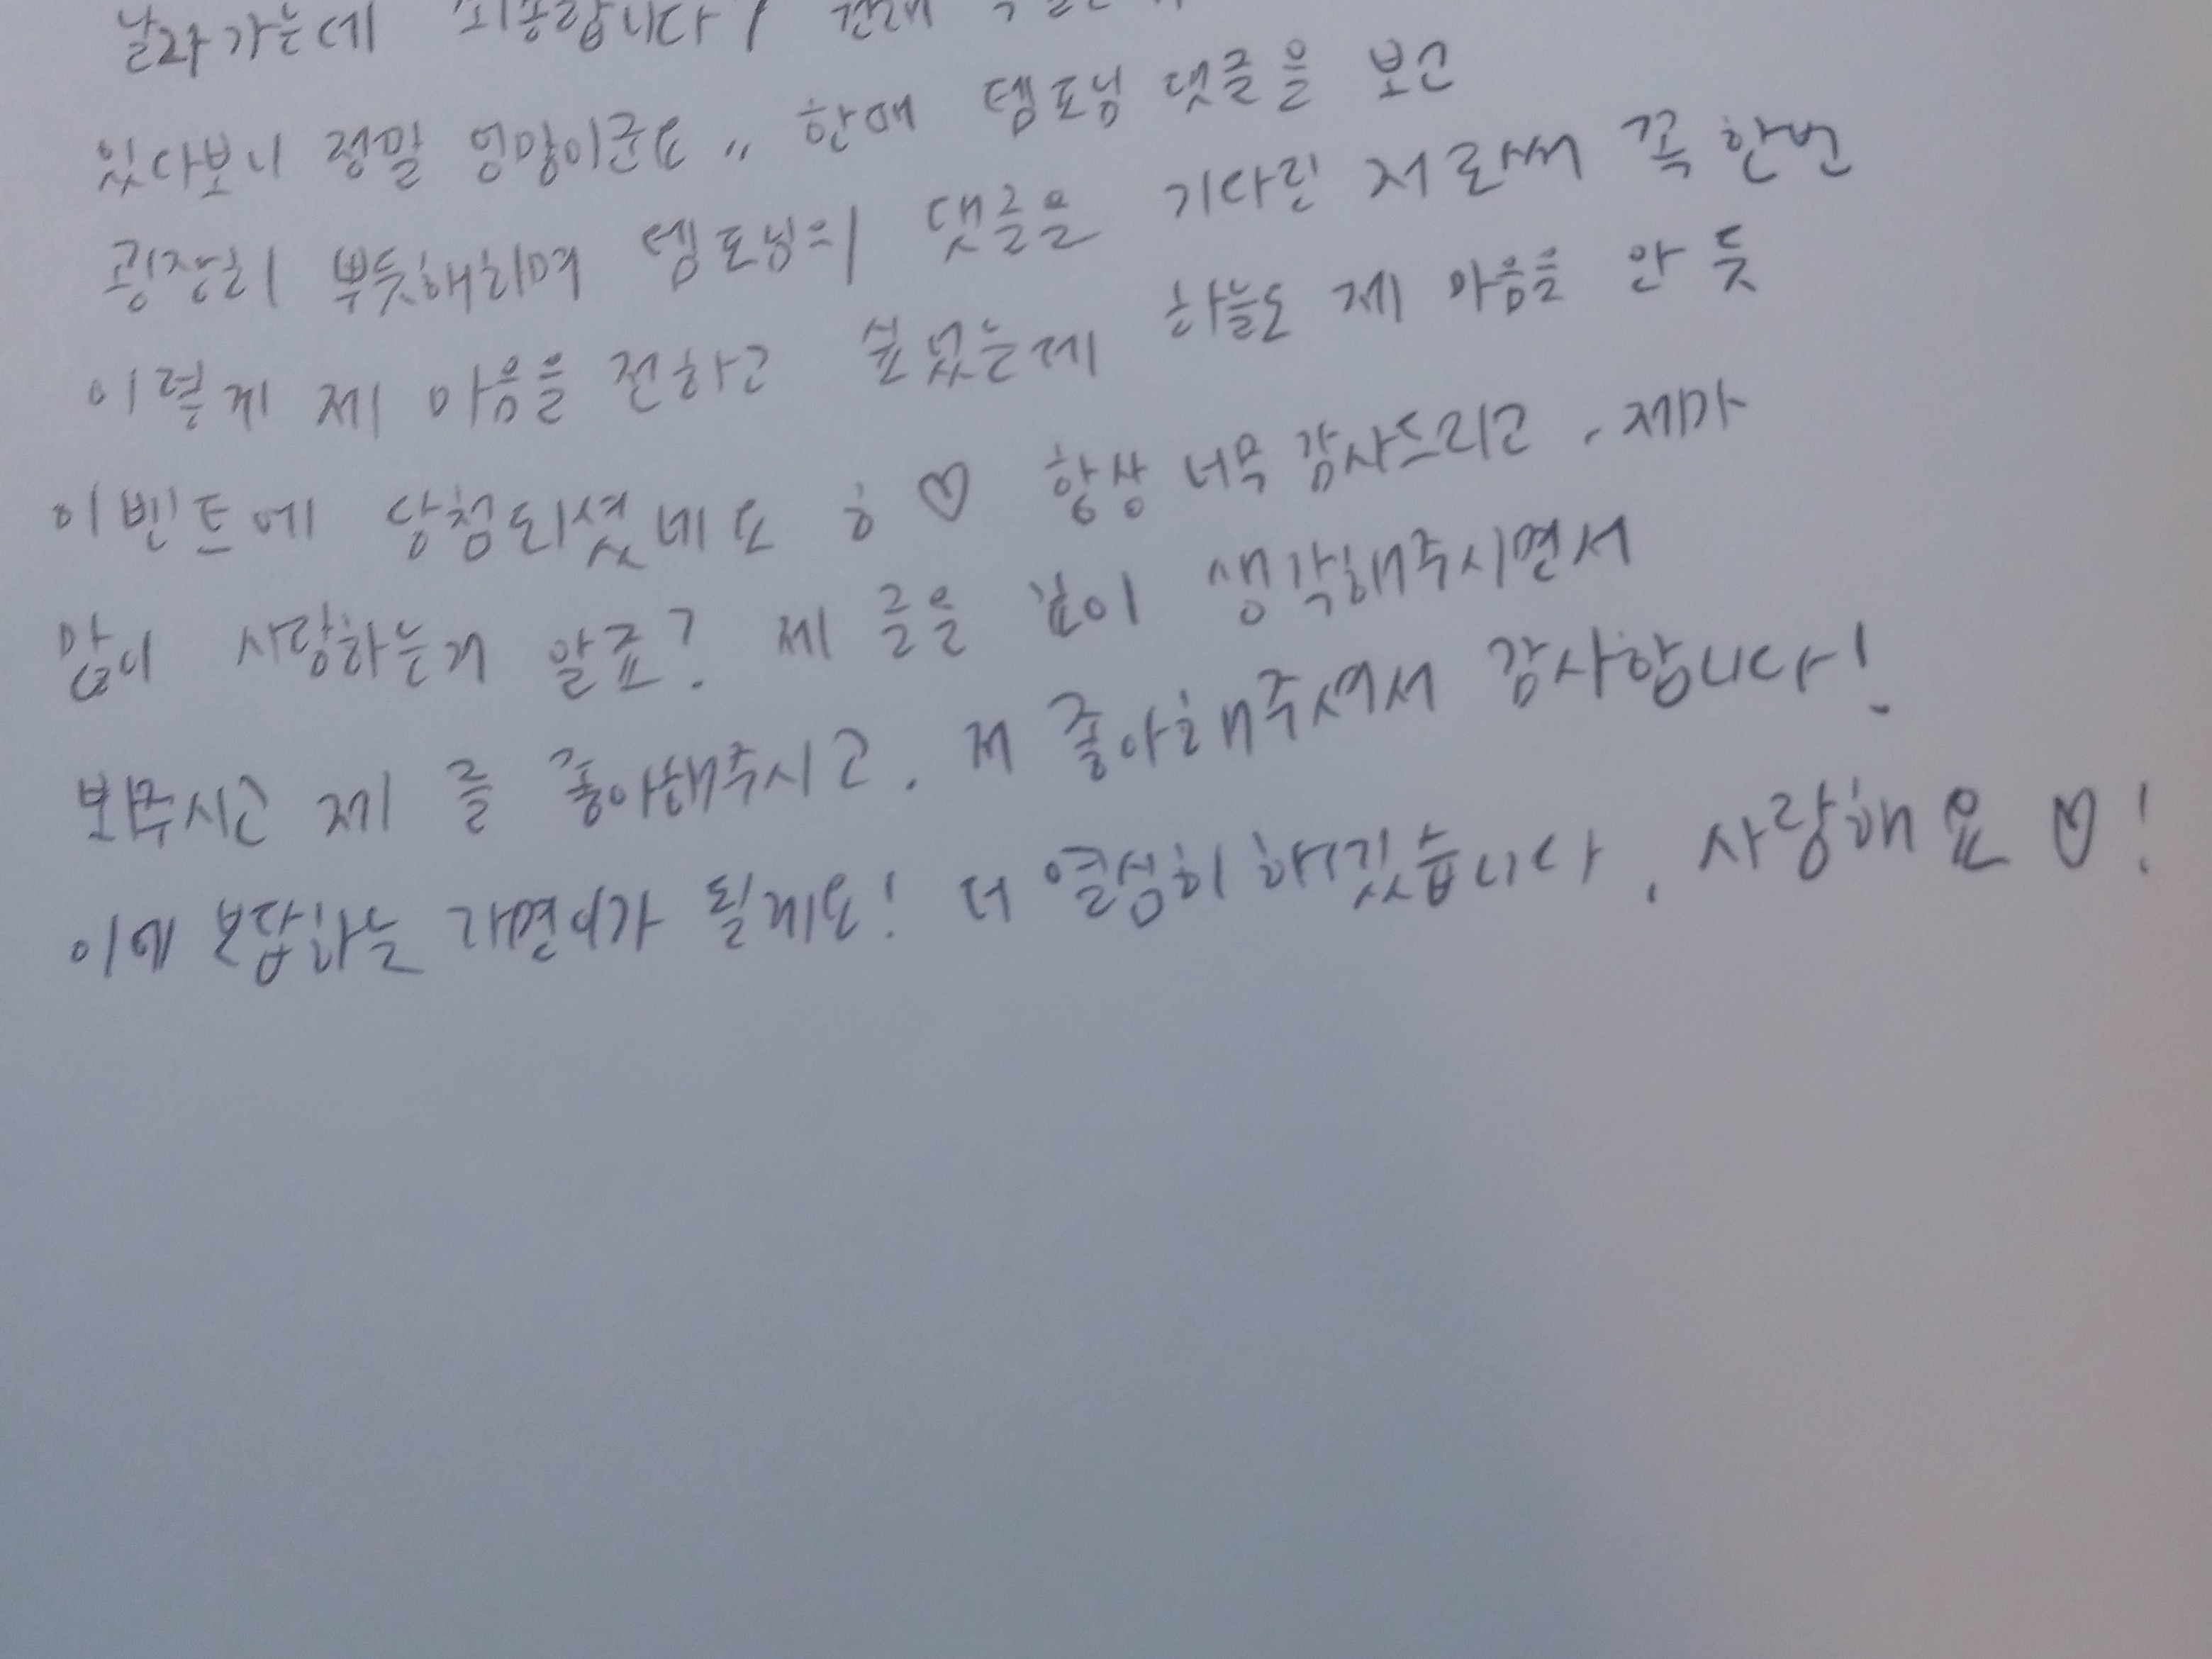 날라가는데 죄송합니다!
있다보니 정말 엉망이군요,, 한때 템포님 댓글을 보고
굉장히 뿌듯해하며 템포님의 댓글을 기다린 저로써 꼭 한번
이렇게 제 마음을 전하고 싶었는데 하늘도 제 마음을 안 듯
이벤트에 당첨되셨네요 흐♡ 항상 너무 감사드리고, 제가
많이 사랑하는거 알죠? 제 글을 깊이 생각해주시면서
봐주시고 제 글 좋아해주시고, 저 좋아해주셔서 감사합니다!
이에 보답하는 가 될게요! 더 열심히 하겠습니다, 사랑해요♡!